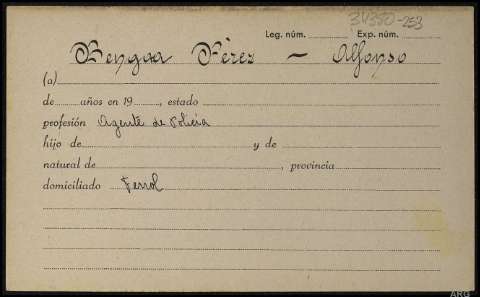 31350-253
Leg. núm. Exp. núm.
Bengoa Pérez — Alfonso
(a)
de años en 19, estado
profesión Agente de Policia
hijo de y de
natural de, provincia
domiciliado Ferrol
ARG